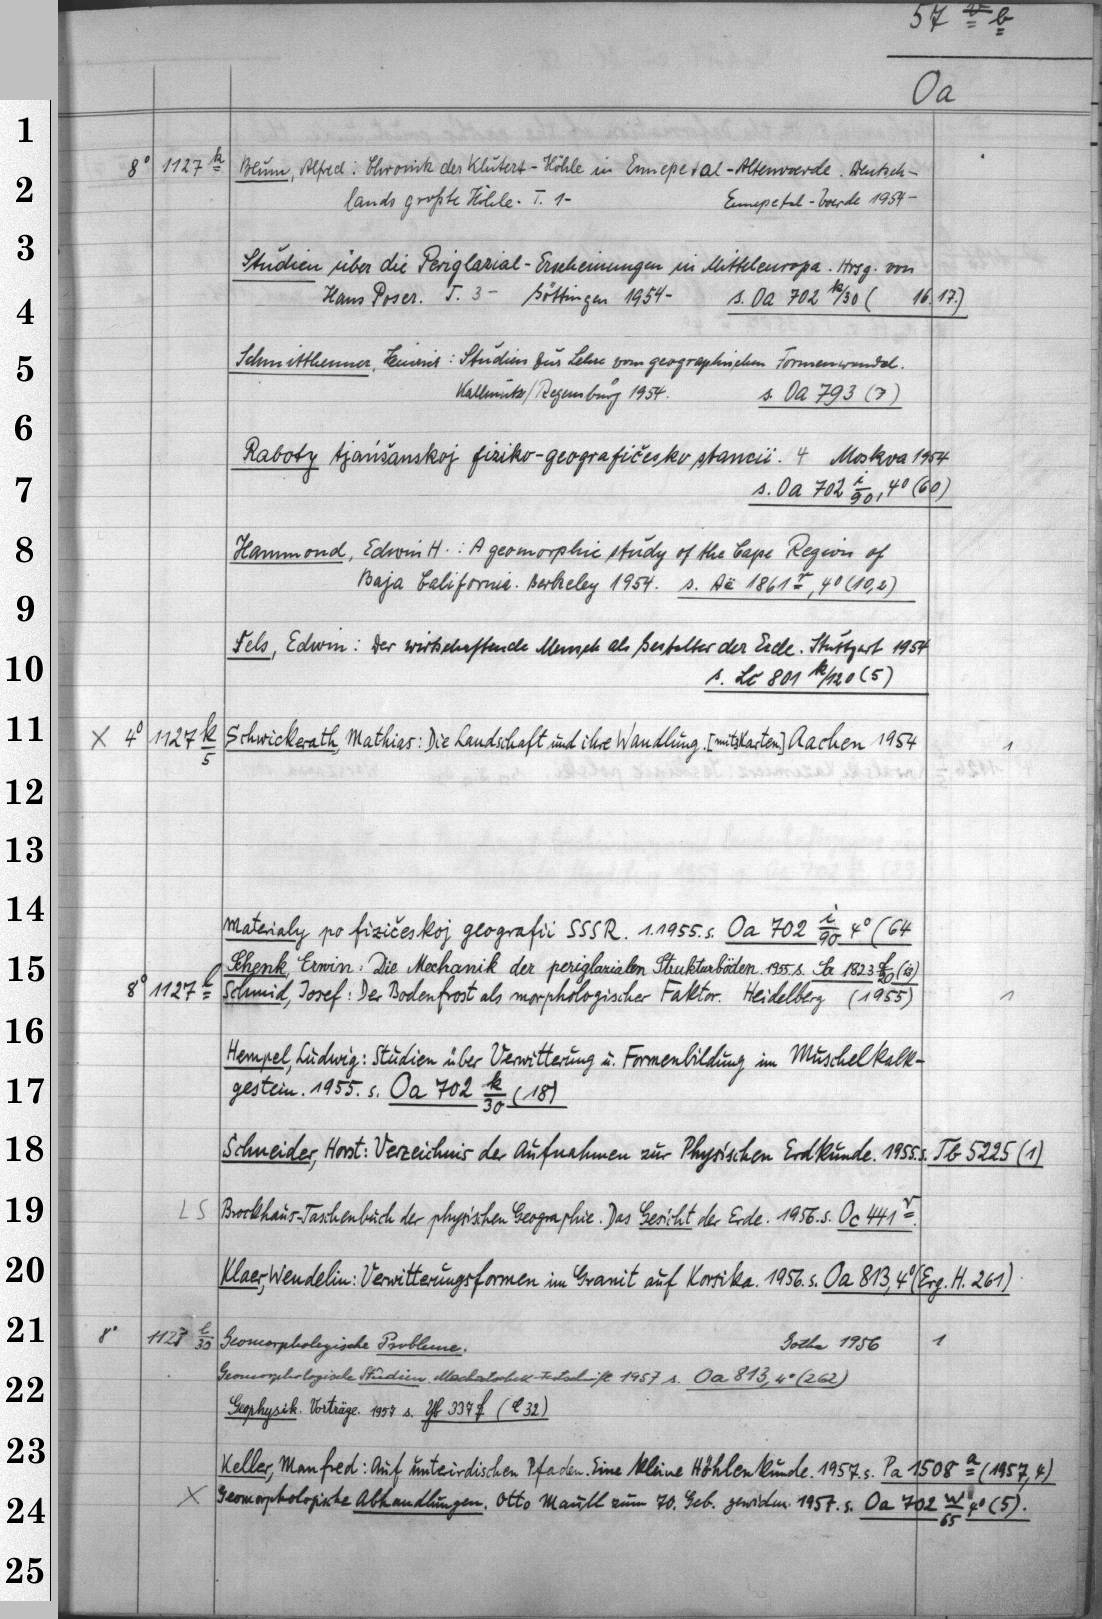 57 b
Oa
1
2
3
4
5
6
7
8
9
10
11
12
13
14
15
16
17
18
19
20
21
22
23
24
25
8° 1127 k Blum, Alfred: Chronik der Klutert-Höhle in Ennepetal-Altenvoerde. Deutsch-
lands größte Höhle. T. 1- Ennepetal-Voerde 1954-
Studien über die Periglazial-Erscheinungen in Mitteleuropa. Hrsg. von
Hans Poser. T. 3- Göttingen 1954- s. Oa 702 k/30 ( 16.17.)
Schmitthenner, Heinrich: Studien zur Lehre vom geographischen Formenwandel.
Kallmünz/Regensburg 1954. s. Oa 793 (7)
Raboty tjańšanskoj fiziko-geografičesko stancii. 4 Moskva 1954
s. Oa 702 i/90, 4° (60)
Hammond, Edwin H.: A geomorphic study of the Cape Region of
Baja California. Berkeley 1954. s. Aë 1861 r, 4° (10,2)
Fels, Edwin: Der wirtschaftende Mensch als Gestalter der Erde. Stuttgart 1954
s. Lc 801 k/120 (5)
X 4° 1127 k/5 Schwickerath, Mathias: Die Landschaft und ihre Wandlung. [mit Karten] Aachen 1954 1
Materialy po fizičeskoj geografii SSSR. 1.1955. s. Oa 702 i/90 4° (64
Schenk, Erwin: Die Mechanik der periglazialen Strukturböden. 1955 s. Sa 1823
8° 1127 l Schmid, Josef: Der Bodenfrost als morphologischer Faktor. Heidelberg (1955) 1
Hempel, Ludwig: Studien über Verwitterung u. Formenbildung im Muschelkalk-
gestein. 1955. s. Oa 702 k/30 (18)
Schneider, Horst: Verzeichnis der Aufnahmen zur Physischen Erdkunde. 1955. s. Tb 5225 (1)
LS Brockhaus-Taschenbuch der physischen Geographie. Das Gesicht der Erde. 1956. s. Oc 441 r
Klaer, Wendelin: Verwitterungsformen im Granit auf Korsika. 1956. s. Oa 813, 4° (Erg. H. 261)
8° 1127 l/30 Geomorphologische Probleme. Gotha 1956 1
Geomorphologische Studien. Machatschek-Festschrift 1957 s. Oa 813, 4° (262)
Geophysik. Vorträge. 1957 s. Yb 337 f (C 32)
Keller, Manfred: Auf unterirdischen Pfaden. Eine kleine Höhlenkunde. 1957. s. Pa 1508 a (1957, 4)
X Geomorphologische Abhandlungen. Otto Maull zum 70. Geb. gewidm. 1957. s. Oa 702 w/65 4° (5).